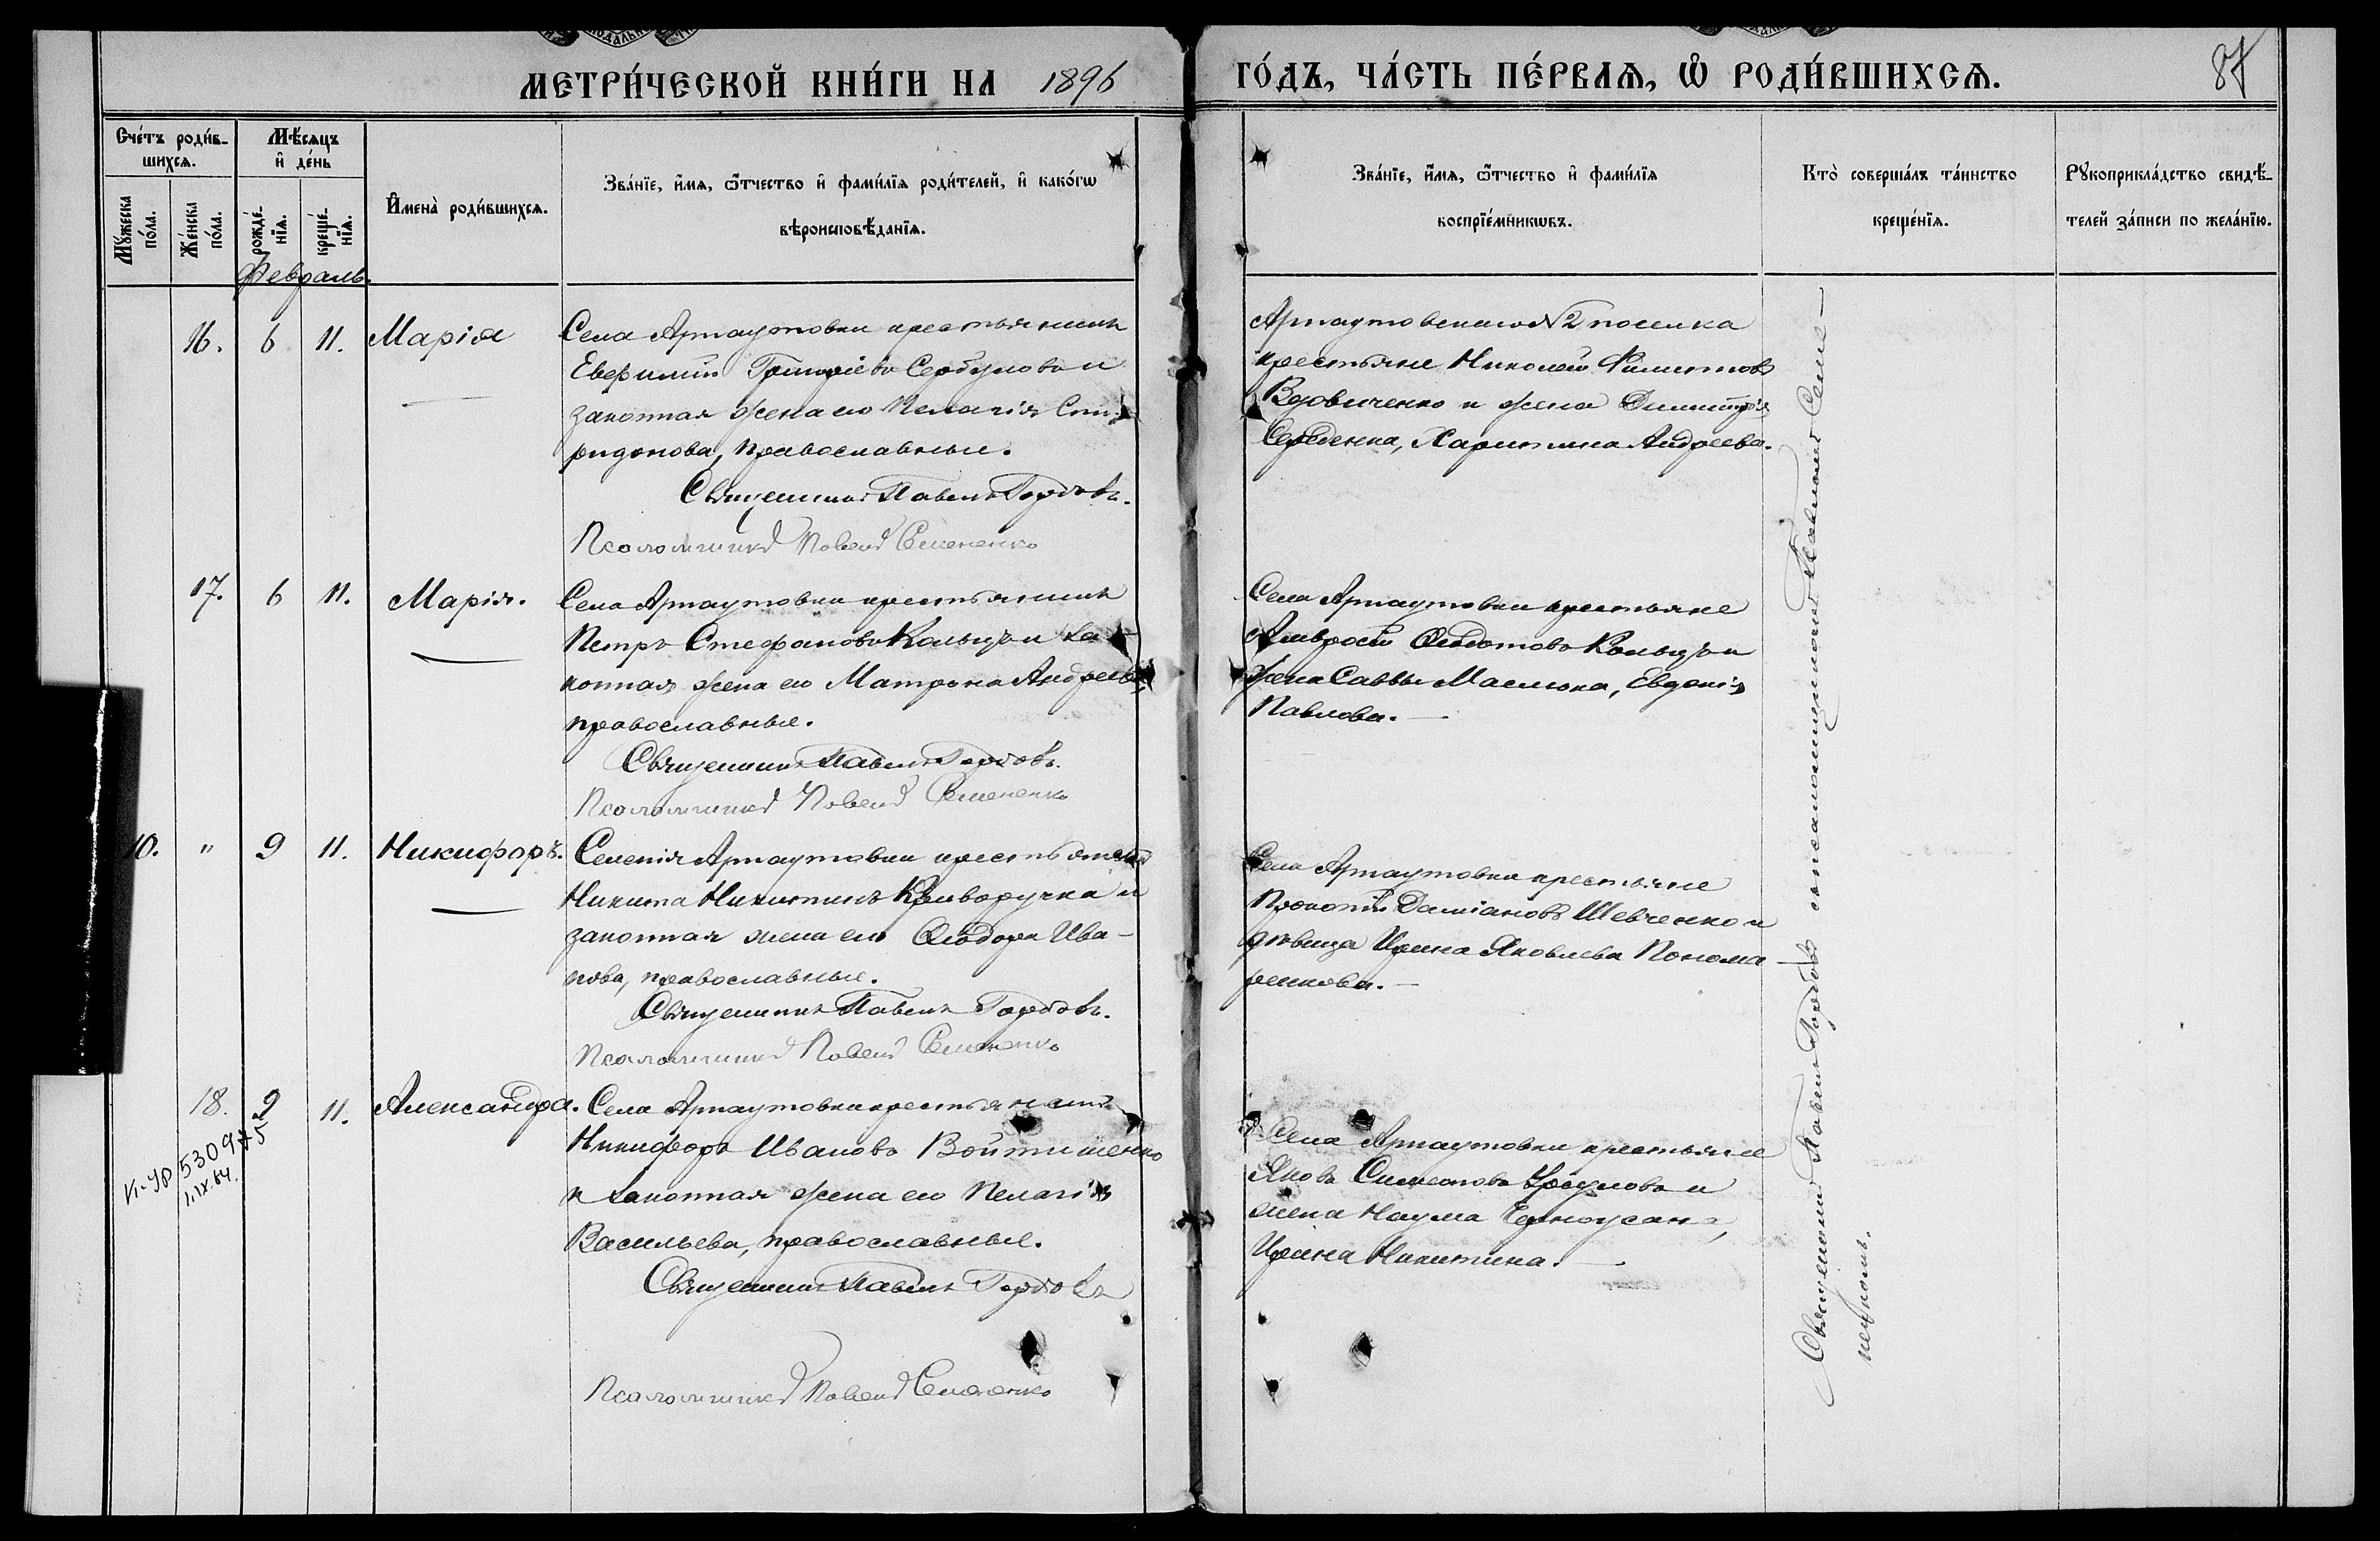 МЕТРИ́ЧЕСКОЙ КНИ́ГИ НА 1896 ГО́ДЪ, ЧА́СТЬ ПЕ́РВАѦ, Ѡ҆ РОДИ́ВШИХСѦ. 87
Сче́тъ роди́в-
шихсѧ.
Мꙋ́жеска
по́ла.
Же́нска
по́ла.
Мѣ́сѧцъ
и҆ де́нь
рожде́-
нїѧ.
креще́-
нїѧ.
И҆мена̀ роди́вшихсѧ.
Зва́нїе, и҆́мѧ, ѻ҆́тчество и҆ фами́лїѧ роди́телей, и҆ како́гѡ
вѣроисповѣ́данїѧ.
Зва́нїе, и҆́мѧ, ѻ҆́тчество и҆ фами́лїѧ
воспрїе́мникѡвъ.
Кто̀ соверша́лъ та́инство
креще́нїѧ.
Рꙋкоприкла́дство свидѣ́-
телей за́писи по жела́нїю.
Февраль.
16. 6 11. Марія
Села Арнаутовки крестьянинъ
Григоріевъ Сербуловъ и
законная жена его Пелагія Спи-
ридонова, православные.
Священникъ Павелъ Горбовъ.
Псаломщикъ Павелъ Семененко
Арнаутовскаго №2 поселка
крестьяне Николай Филиповъ
Вдовиченко и жена Димитрія
Середенка, Харитина Андреева.
17. 6 11. Марія.
Села Арнаутовки крестьянинъ
Петръ Стефановъ Кольцъ и за-
конная жена его Матрона Андреева
православные.
Священникъ Павелъ Горбовъ.
Псаломщикъ Павелъ Семененко
Села Арнаутовки крестьяне
Амвросій Ѳедотовъ Кольцъ и
жена Саввы Маслюка, Евдокія
Павлова.
10. " 9 11. Никифоръ.
Селенія Арнаутовки крестьянинъ
Никита Никитинъ Криворучка и
законная жена его Ѳеодора Ива-
нова, православные.
Священникъ Павелъ Горбовъ.
Псаломщикъ Павелъ Семененко
Села Арнаутовки крестьяне
Прокопій Даміановъ Шевченко и
дѣвица Ирина Яковлева Понома-
ренкова.
18. 9 11. Александра.
VI-УР 530975
1.IX.64.
Села Арнаутовки крестьянинъ
Никифоръ Ивановъ Войтишенко
и законная жена его Пелагія
Васильева, православные.
Священникъ Павелъ Горбовъ
Псаломщикъ Павелъ Семененко
Села Арнаутовки крестьяне
Яковъ Симеоновъ Урсуловъ и
жена Наума Черноусана,
Ирина Никитина.
Священникъ Павелъ Горбовъ съ псаломщикомъ Павломъ Семе-
ненкомъ.